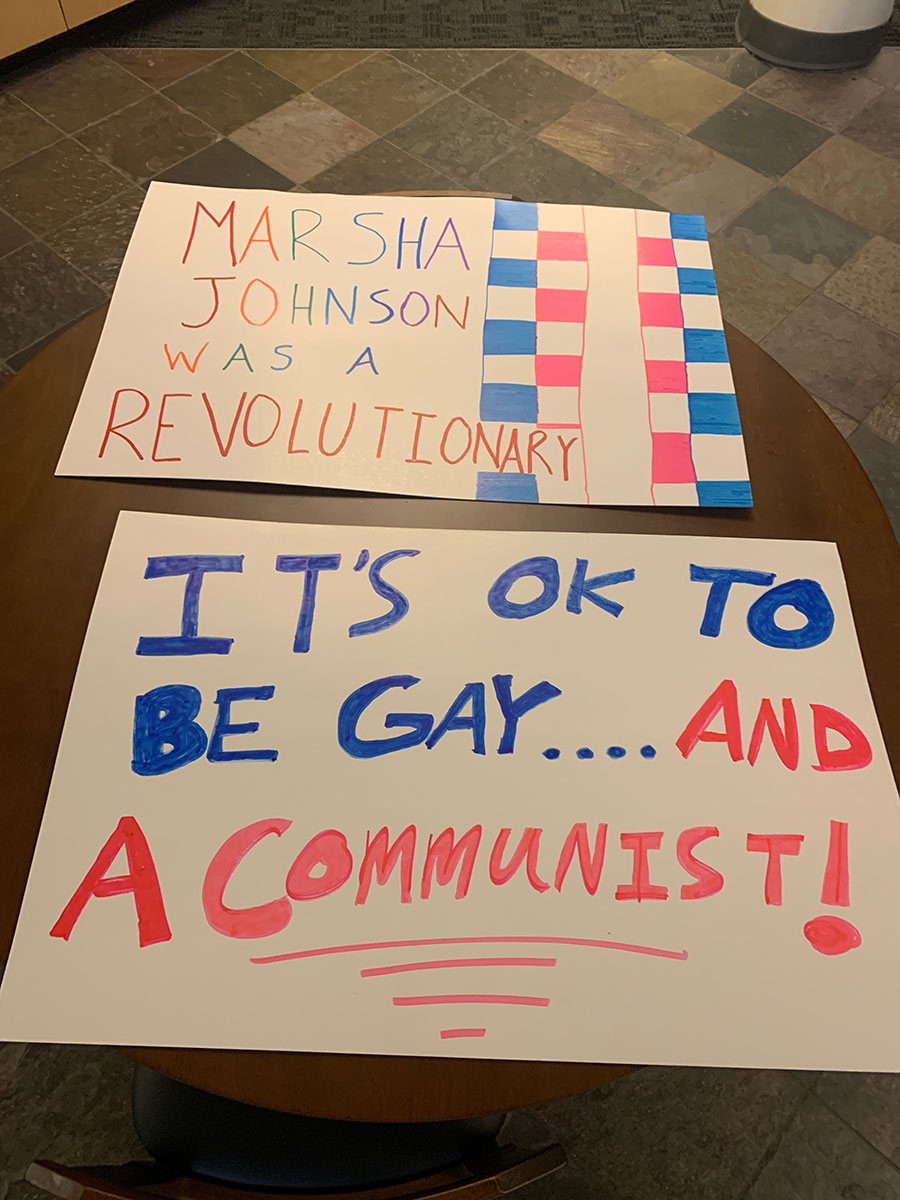 MARSHA
JOHNSON
WAS A
REVOLUTIONARY
IT'S OK TO
BE GAY.... AND
A COMMUNIST!